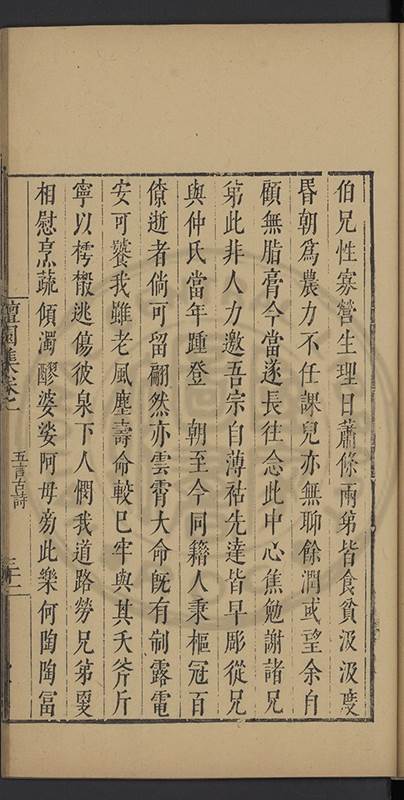 伯兄性寡營生理日蕭條兩弟皆食貧汲汲度
昏朝爲農力不任課兒亦無聊餘潤或望余自
顧無脂膏今當遂長往念此中心焦勉謝諸兄
弟此非人力邀吾宗自薄祜先達皆早彫從兄
與仲氏當年踵登　朝至今同籍人秉樞冠百
僚逝者倘可留翩然亦雲霄大命既有制露電
安可饕我雖老風塵壽命較已牢與其夭斧斤
寧以樗散逃傷彼泉下人憫我道路勞兄弟更
相慰烹蔬傾濁醪婆娑阿母旁此樂何陶陶富
檀園集卷一
五言古詩